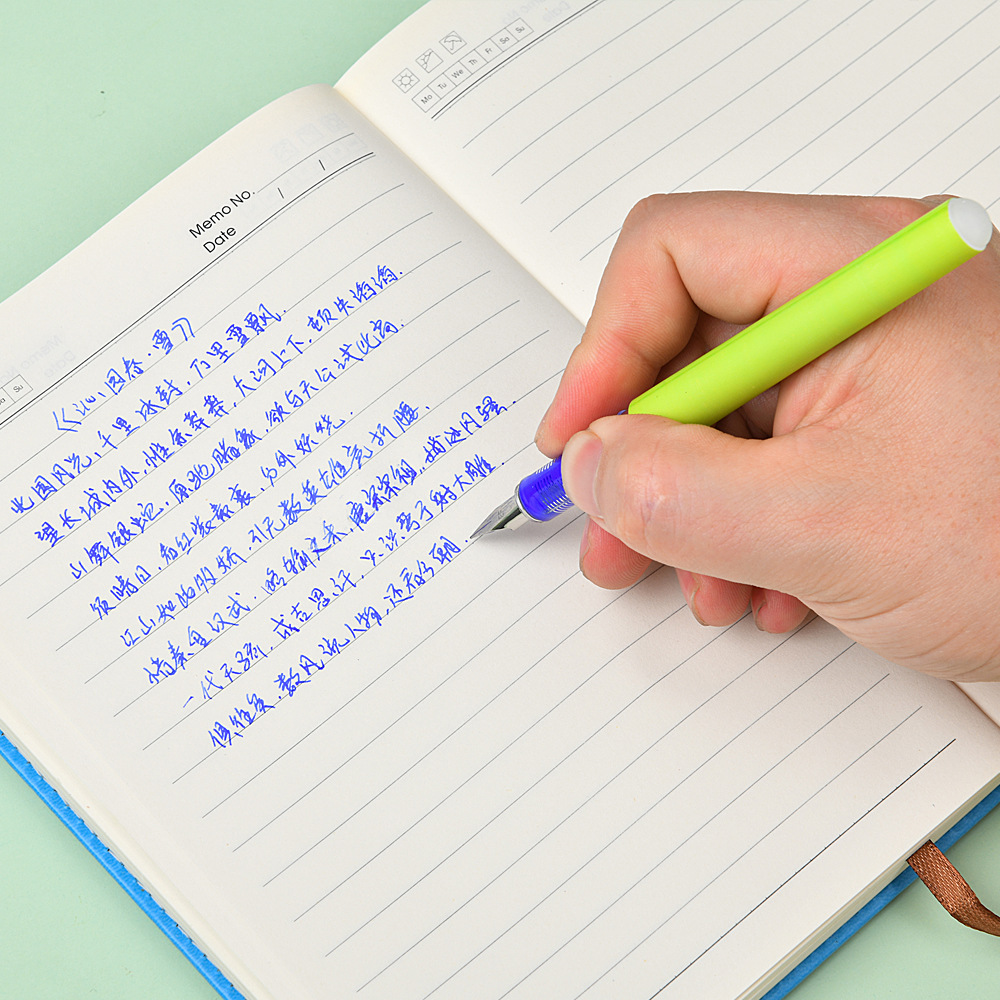 Memo No.
Date / /
《沁园春·雪》
北国风光，千里冰封，万里雪飘.
望长城内外，惟余莽莽，大河上下，顿失滔滔.
山舞银蛇，原驰腊象，欲与天公试比高.
须晴日，看红装素裹，分外妖娆.
江山如此多娇，引无数英雄竞折腰.
惜秦皇汉武，略输文采，唐宗宋祖，稍逊风骚.
一代天骄，成吉思汗，只识弯弓射大雕.
俱往矣，数风流人物，还看今朝.
Sa Su
Mo Tu We Th Fr Sa Su